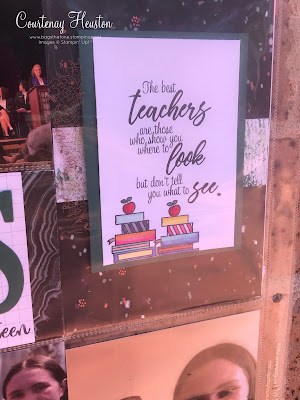 Courtenay Heuston
Images © Stampin' Up!
The best
teachers
are those
who show you
where to
look
but don't tell
you what to
see.
S
een